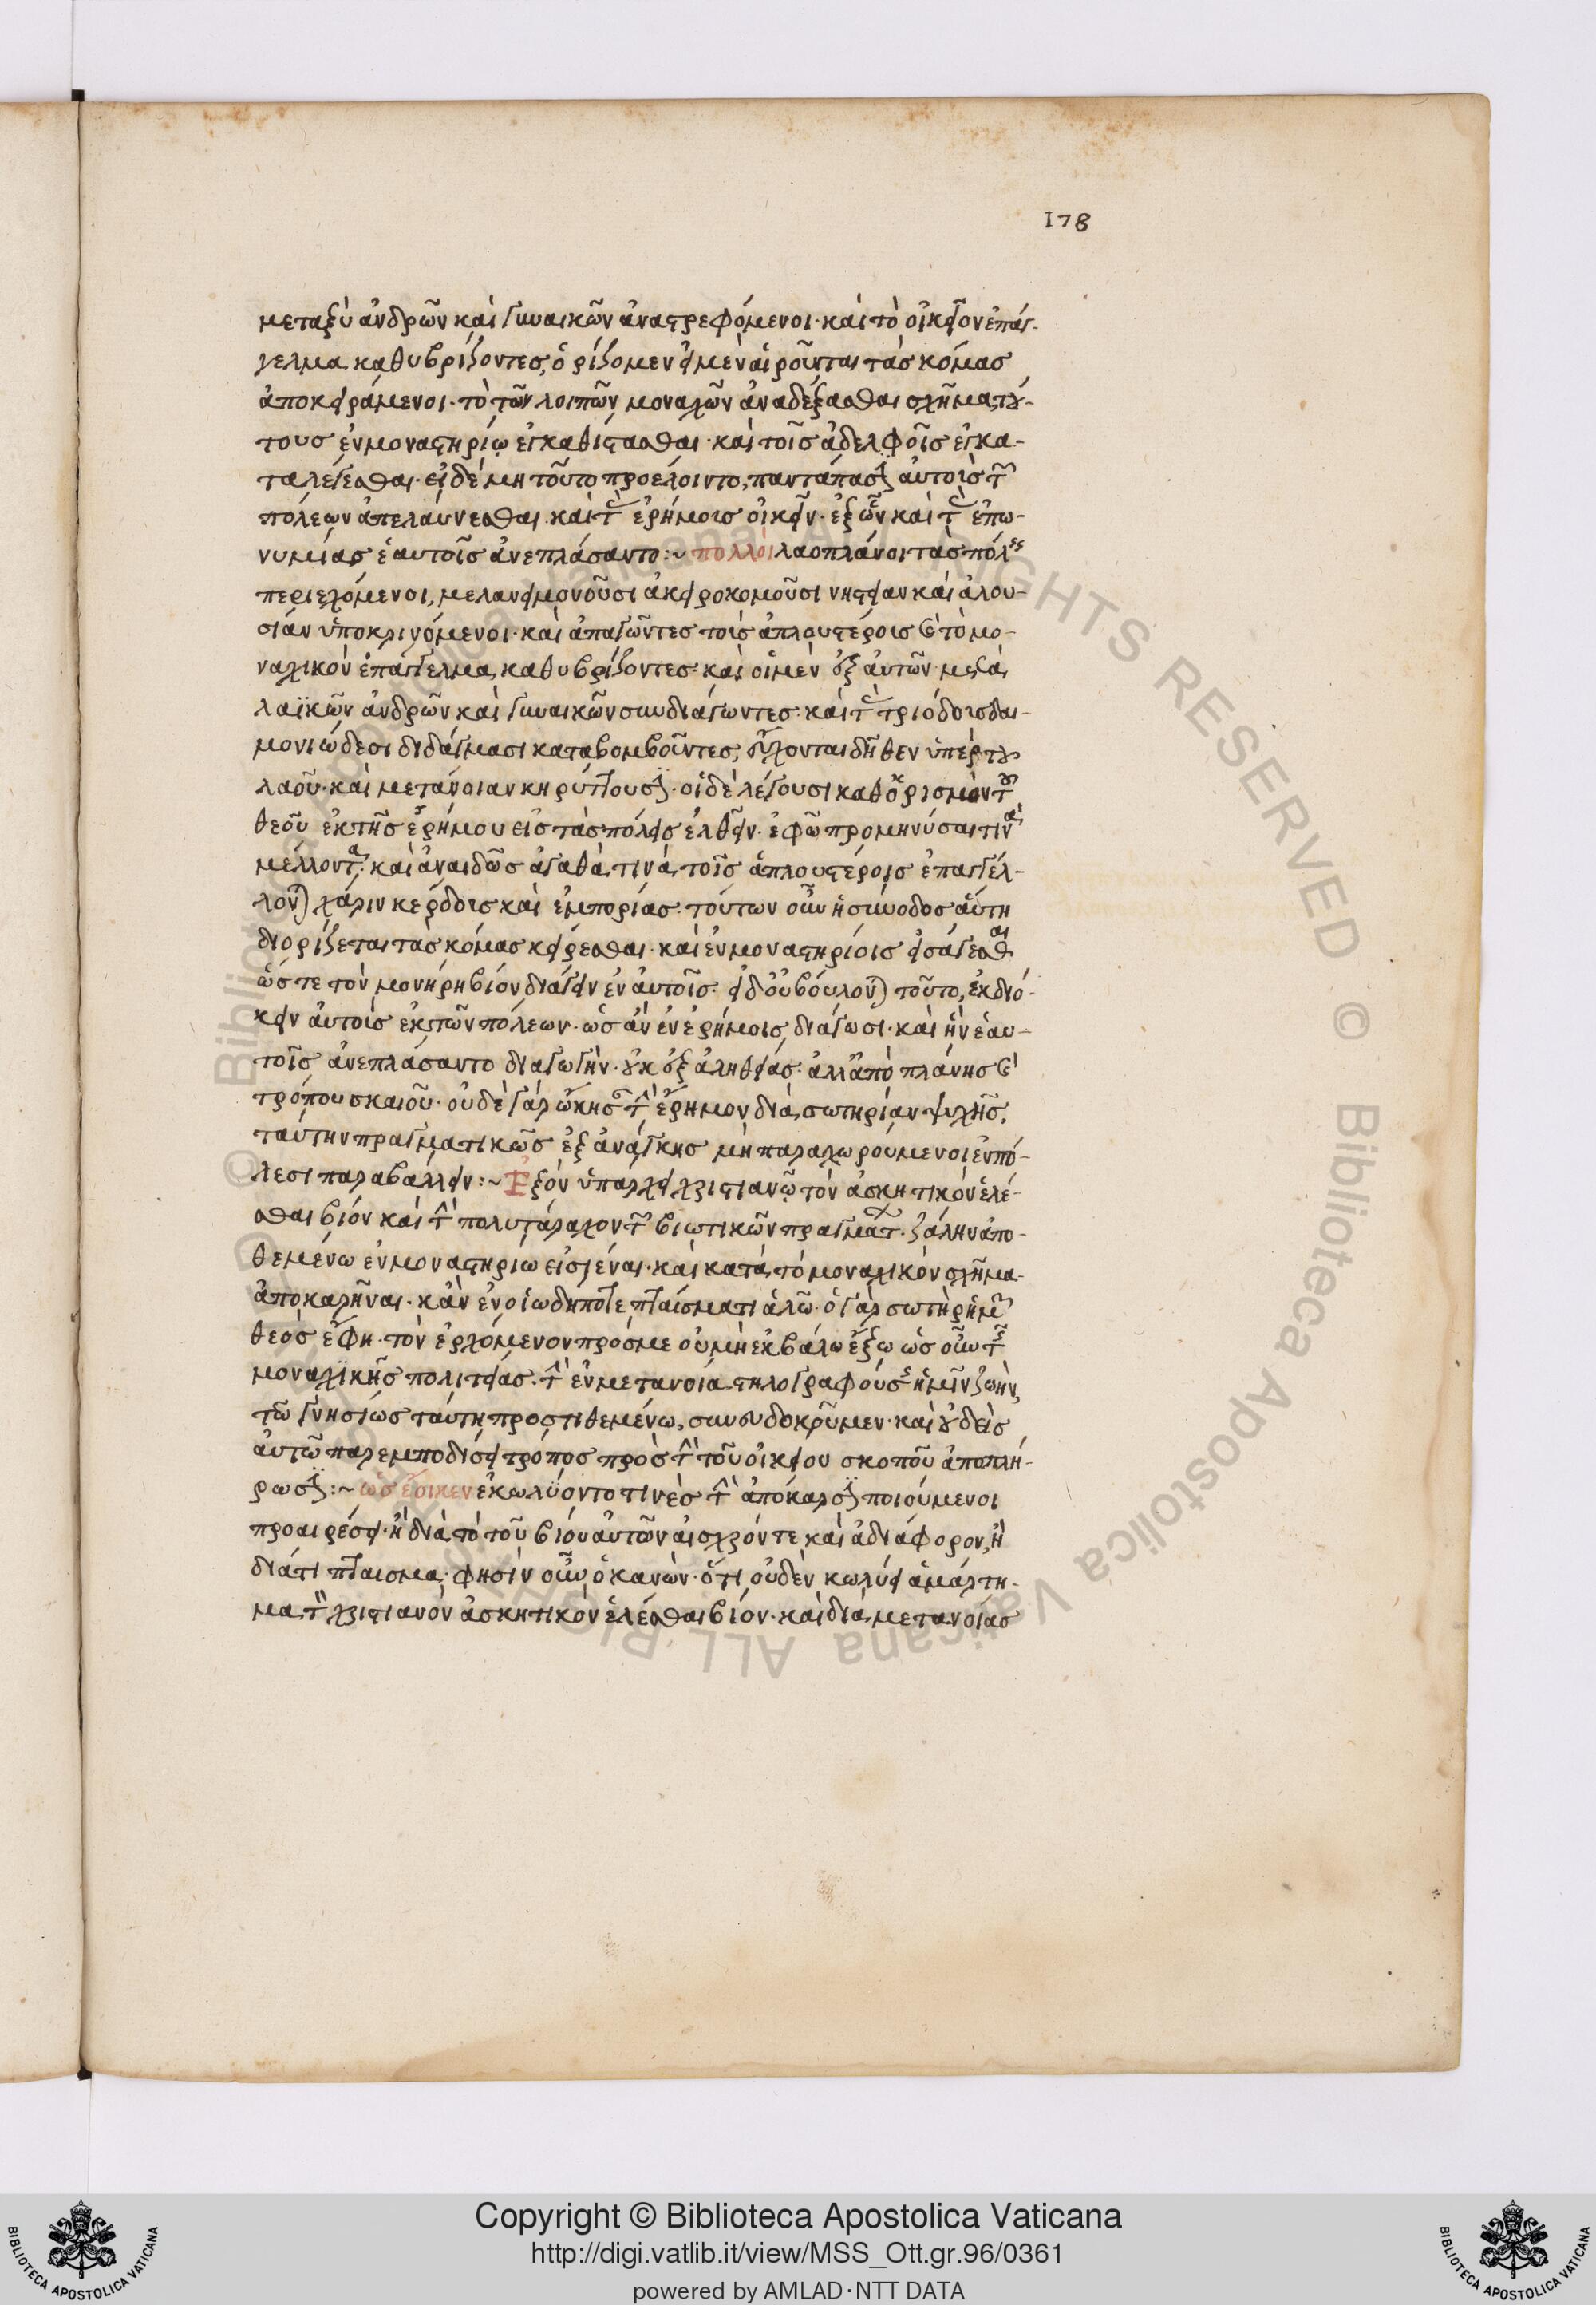 178
μεταξὺ ἀνδρῶν καὶ γυναικῶν ἀναστρεφόμενοι· καὶ τὸ οἰκεῖον ἐπάγ-
γελμα καθυβρίζοντες, ὁρίζομεν εἰ μὲν αἱροῦνται τὰς κόμας
ἀποκειράμενοι· τὸ τῶν λοιπῶν μοναχῶν ἀναδέξασθαι σχῆμα, τού-
τους ἐν μοναστηρίω ἐγκαθίστασθαι· καὶ τοῖς ἀδελφοῖς ἐγκα-
ταλέγεσθαι· εἰ δὲ μὴ τοῦτο προέλοιντο, παντάπασιν αὐτοὺς τῶν
πόλεων ἀπελαύνεσθαι· καὶ τὰς ἐρήμους οἰκεῖν· ἐξ ὧν καὶ τὰς ἐπω-
νυμίας ἑαυτοῖς ἀνεπλάσαντο:~ πολλοὶ λαοπλάνοι τὰς πόλεις
περιερχόμενοι, μελανειμονοῦσι ἀκειροκομοῦσι νηστείαν καὶ ἀλου-
σίαν ὑποκρινόμενοι· καὶ ἀπατῶντες τοὺς ἁπλουστέροις καὶ τὸ μο-
ναχικὸν ἐπάγγελμα καθυβρίζοντες· καὶ οἱ μὲν ἐξ αὐτῶν μετὰ
λαϊκῶν ἀνδρῶν καὶ γυναικῶν συνδιάγωντες· καὶ τὰς τριόδους δαι-
μονιώδεσι διδάγμασι καταβομβοῦντες, εὔχονται δῆθεν ὑπὲρ τοῦ
λαοῦ· καὶ μετάνοιαν κηρύττουσιν· οἱ δὲ λέγουσι καθ' ὁρισμὸν τοῦ
θεοῦ ἐκ τῆς ἐρήμου εἰς τὰς πόλεις ἐλθεῖν· ἐφ' ῶ προμηνύσαι τινὰ
μέλλοντα· καὶ ἀναιδῶς ἀγαθά τινα τοῖς ἁπλουστέροις ἐπαγγέλ-
λονται χάριν κέρδους καὶ ἐμπορίας· τούτων οὖν ἡ σύνοδος αὕτη
διορίζεται τὰς κόμας κείρεσθαι· καὶ ἐν μοναστηρίοις εἰσάγεσθαι
ὥστε τὸν μονήρη βίον διάγειν ἐν αὐτοῖς· εἰ δ' οὐ βούλονται τοῦτο, ἐκδιό-
κειν αὐτοὺς ἐκ τῶν πόλεων· ὡς ἂν ἐν ἐρήμοις διάγωσι· καὶ ἣν ἑαυ-
τοῖς ἀνεπλάσαντο διαγωγήν· οὐκ ἐξ ἀληθείας· ἀλλ' ἀπὸ πλάνης καὶ
τρόπου σκαιοῦ· οὐδὲ γὰρ ᾤκησαν τὴν ἔρημον διὰ σωτηρίαν ψυχῆς,
ταύτην πραγματικῶς ἐξ ἀνάγκης μὴ παραχωρούμενοι ἐν πό-
λεσι παραβάλλειν:~ Ἐξὸν ὑπάρχει χριστιανῶ τὸν ἀσκητικὸν ἑλέ-
σθαι βίον καὶ τὴν πολυτάραχον τῶν βιωτικῶν πραγμάτων ζάλην ἀπο-
θεμένω ἐν μοναστηρίω εἰσιέναι· καὶ κατὰ τὸ μοναχικὸν σχῆμα
ἀποκαρῆναι· κἂν ἐν οἱωδήποτε πταίσματι ἁλῶ· ὁ γὰρ σωτὴρ ἡμῶν
θεὸς ἔφη· τὸν ἐρχόμενον πρός με οὐ μὴ ἐκβάλω ἔξω ὡς οὖν τῆς
μοναχικῆς πολιτείας· τὴν ἐν μετανοία στηλογραφούσης ἡμῖν ζωήν,
τῶ γνησίως ταύτη προστιθεμένω, συνευδοκοῦμεν· καὶ οὐδεὶς
αὐτῶ παρεμποδίσει τρόπος πρὸς τὴν τοῦ οἰκείου σκοποῦ ἀποπλή-
ρωσιν:~ ὡς ἔοικεν ἐκωλύοντο τινὲς τὴν ἀπόκαρσιν ποιούμενοι
προαιρέσει· ἢ διὰ τὸ τοῦ βίου αὐτῶν αἰσχρόν τε καὶ ἀδιάφορον, ἢ
διά τι πταισμα· φησὶν οὖν ὁ κανὼν· ὅτι οὐδὲν κωλύει ἁμάρτη-
μα τὸν χριστιανὸν ἀσκητικὸν ἑλέσθαι βίον· καὶ διὰ μετανοίας
Copyright © Biblioteca Apostolica Vaticana
http://digi.vatlib.it/view/MSS_Ott.gr.96/0361
powered by AMLAD·NTT DATA